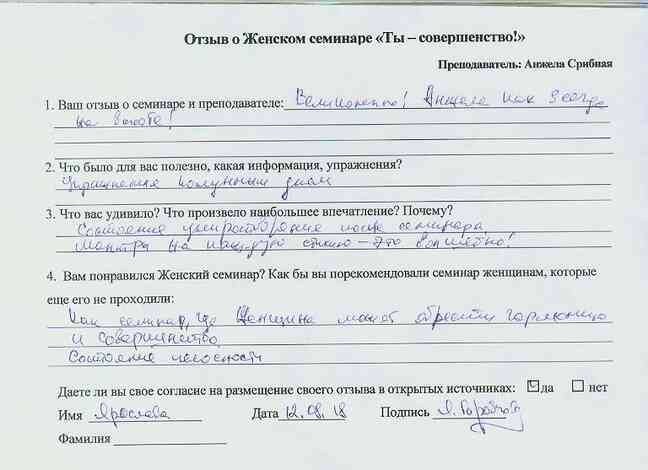 Отзыв о Женском семинаре «Ты – совершенство!»
Преподаватель: Анжела Срибная
1. Ваш отзыв о семинаре и преподавателе: Великолепно! Анжела как всегда
на высоте!
2. Что было для вас полезно, какая информация, упражнения?
Упражнения по лунным дням
3. Что вас удивило? Что произвело наибольшее впечатление? Почему?
Состояние умиротворения после семинара
Мантра на каждую стихию – это волшебно!
4. Вам понравился Женский семинар? Как бы вы порекомендовали семинар женщинам, которые
еще его не проходили:
Как семинар, где Женщина может обрести гармонию
и совершенство
Состояние целостности
Даете ли вы свое согласие на размещение своего отзыва в открытых источниках: да нет
Имя Ярослава Дата 12.08.18 Подпись
Фамилия